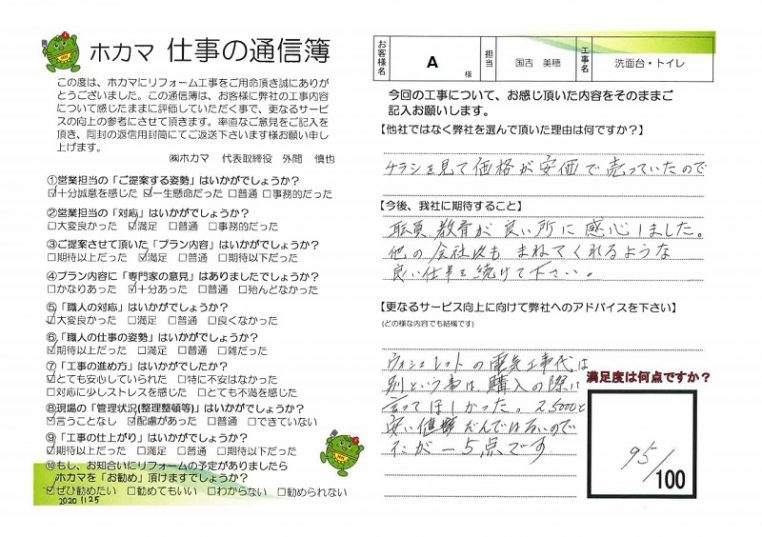 ホカマ 仕事の通信簿
この度は、ホカマにリフォーム工事をご用命頂き誠にありが
とうございました。この通信簿は、お客様に弊社の工事内容
について感じたままに評価していただく事で、更なるサービ
スの向上の参考にさせて頂きます。率直なご意見をご記入を
頂き、同封の返信用封筒にてご返送下さいます様お願い申し
上げます。
㈱ホカマ 代表取締役 外間 慎也
①営業担当の「ご提案する姿勢」はいかがでしょうか?
☑十分誠意を感じた ☑一生懸命だった □普通 □事務的だった
②営業担当の「対応」はいかがでしょうか?
□大変良かった ☑満足 □普通 □事務的だった
③ご提案させて頂いた「プラン内容」はいかがでしょうか?
□期待以上だった ☑満足 □普通 □期待以下だった
④プラン内容に「専門家の意見」はありましたでしょうか?
□かなりあった ☑十分あった □普通 □殆んどなかった
⑤「職人の対応」はいかがでしょうか?
☑大変良かった □満足 □普通 □良くなかった
⑥「職人の仕事の姿勢」はいかがでしょうか?
☑期待以上だった □満足 □普通 □雑だった
⑦「工事の進め方」はいかがでしたか?
☑とても安心していられた □特に不安はなかった
□対応に少しストレスを感じた □とても不満を感じた
⑧現場の「管理状況(整理整頓等)」はいかがでしょうか?
☑言うことなし ☑配慮があった □普通 □できていない
⑨「工事の仕上がり」はいかがでしょうか?
☑期待以上だった □満足 □普通 □期待以下だった
⑩もし、お知合いにリフォームの予定がありましたら
ホカマを「お勧め」頂けますでしょうか?
☑ぜひ勧めたい □勧めてもいい □わからない □勧められない
2020 11 25
お客様名 A 様 担当 国吉 美穂 工事名 洗面台・トイレ
今回の工事について、お感じ頂いた内容をそのままご
記入お願いします。
【他社ではなく弊社を選んで頂いた理由は何ですか?】
チラシを見て価格が安価で売っていたので
【今後、我社に期待すること】
職員教育が良い所に感心しました。
他の会社以も まねてくれるような
良い仕事を続けて下さい。
【更なるサービス向上に向けて弊社へのアドバイスを下さい】
(どの様な内容でも結構です)
ウォシュレットの電気工事代は
別という事は、購入の際に
言ってほしかった。25000と
安い値段だんではないので
だが −5点です
満足度は何点ですか?
95/100